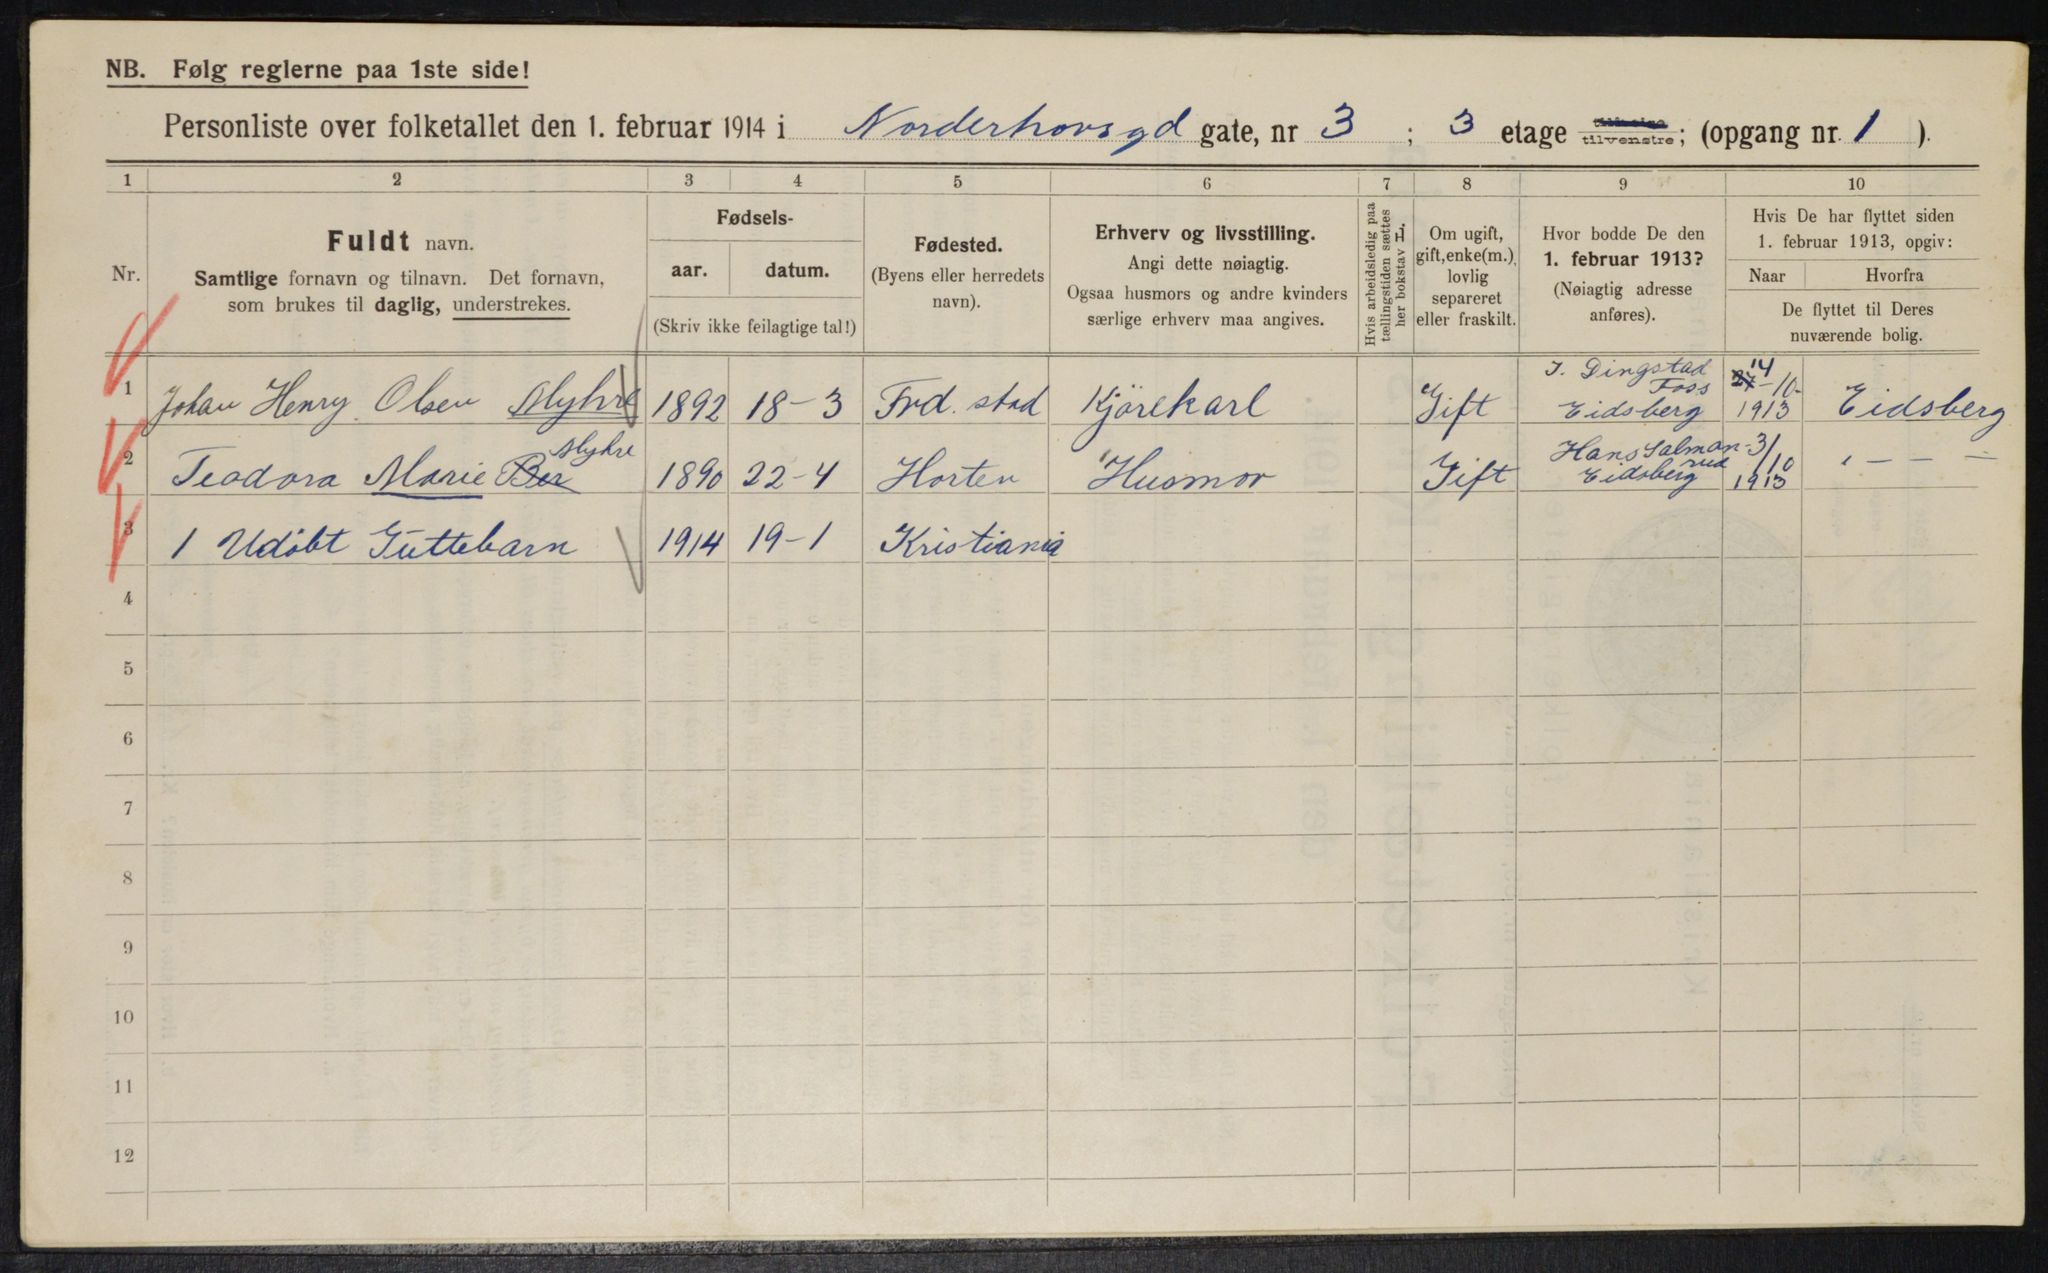 NB. Følg reglerne paa 1ste side!
Personliste over folketallet den 1. februar 1914 i Norderhovsgd gate, nr 3 ; 3 etage tilvenstre; (opgang nr. 1 ).
1 2 3 4 5 6 7 8 9 10
Nr.
Fuldt navn.
Samtlige fornavn og tilnavn. Det fornavn,
som brukes til daglig, understrekes.
Fødsels-
aar. datum.
(Skriv ikke feilagtige tal!)
Fødested.
(Byens eller herredets
navn).
Erhverv og livsstilling.
Angi dette nøiagtig.
Ogsaa husmors og andre kvinders
særlige erhverv maa angives.
Hvis arbeidsledig paa
tællingstiden sættes
her bokstav
Om ugift,
gift, enke(m.),
lovlig
separeret
eller fraskilt.
Hvor bodde De den
1. februar 1913?
(Nøiagtig adresse
anføres).
Hvis De har flyttet siden
1. februar 1913, opgiv:
Naar Hvorfra
De flyttet til Deres
nuværende bolig.
1 Johan Henry Olsen Myhre 1892 18-3 Frd. stad Kjörekarl Gift I. Dingstad Foss Eidsberg 14 -10- 1913 Eidsberg
2 Teodora Marie Ber Myhre 1890 22-4 Horten Husmor Gift Hans Salmon rud Eidsberg 3/10 1913 " — — —
3 1 Udöbt Guttebarn 1914 19-1 Kristiania
4
5
6
7
8
9
10
11
12